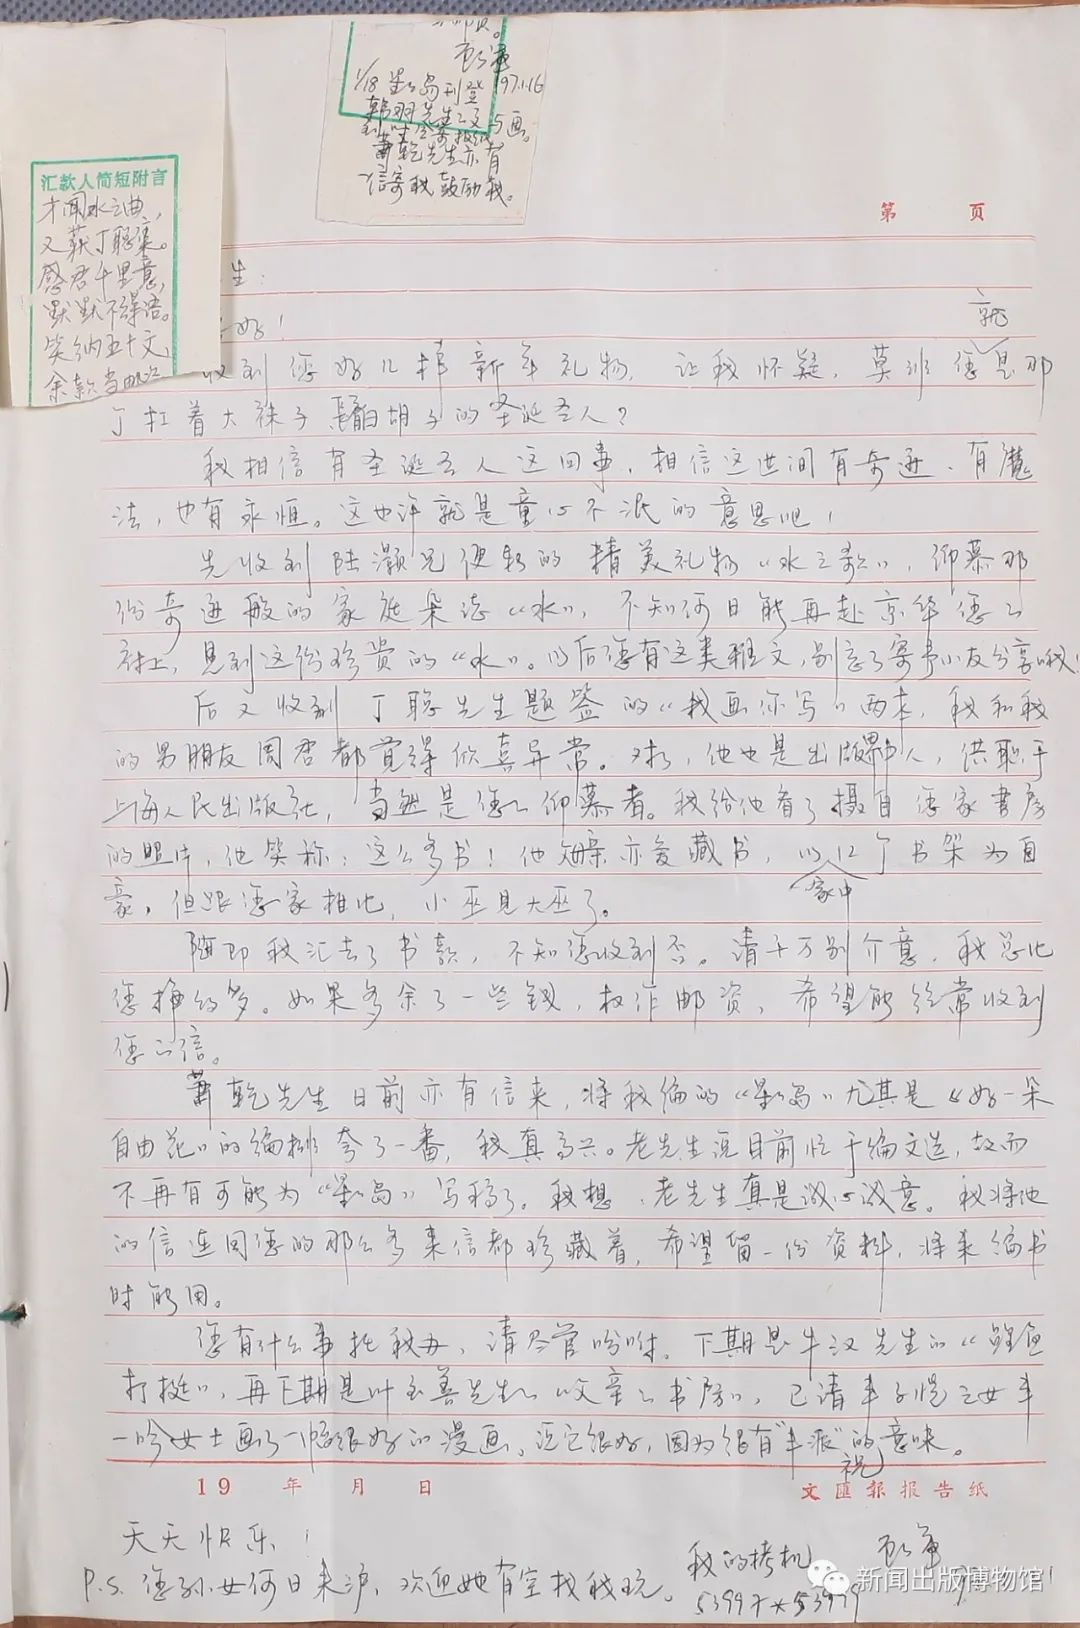 汇款人简短附言
才闻水之曲，
又获丁聪集。
感君千里意，
默默不得语。
笑纳五十文，
余款当邮资
邮资。
97.1.16
1/18 彩岛刊登
韩羽先生之文与画。
萧乾先生亦有
信寄我鼓励我。
第 页
生：
好！
收到您好几样新年礼物，让我怀疑，莫非您就是那
个扛着大袜子长着白胡子的圣诞老人？
我相信有圣诞老人这回事，相信这世间有奇迹、有魔
法，也有永恒。这也许就是童心不泯的意思吧！
先收到陆灏兄便转的精美礼物“水之歌”，仰慕那
份奇迹般的家庭杂志“水”，不知何日能再赴京华您的
府上，见到这份珍贵的“水”。以后您有这类雅文，别忘了寄予小友分享哦！
后又收到丁聪先生题签的“我画你写”两本，我和我
的男朋友周君都觉得欣喜异常。对了，他也是出版界中人，供职于
上海人民出版社，当然是您的仰慕者。我给他看了摄自您家书房
的照片，他笑称：这么多书！他母亲亦爱藏书，以家中12个书架为自
豪，但跟您家相比，小巫见大巫了。
随即我汇去了书款，不知您收到否。请千万别介意，我总比
您挣的多。如果多余了一些钱，权作邮资，希望能经常收到
您的信。
萧乾先生日前亦有信来，将我编的“彩岛”尤其是“好一朵
自由花”的编排夸了一番，我真高兴。老先生说目前忙于编文选，故而
不再有可能为“彩岛”写稿了。我想，老先生真是诚心诚意。我将他
的信连同您的那么多来信都珍藏着，希望留一份资料，将来编书
时能用。
您有什么事托我办，请尽管吩咐。下期是牛汉先生的“鲤鱼
打挺”，再下期是叶至善先生的“父亲的书房”，已请丰子恺之女丰
一吟女士画了一幅很好的漫画。还它很好，因为很有“丰派”的意味。
祝
19 年 月 日
文匯報报告纸
天天快乐！
P.S. 您孙女何日来沪，欢迎她有空找我玩。
我的拷机
新闻出版博物馆